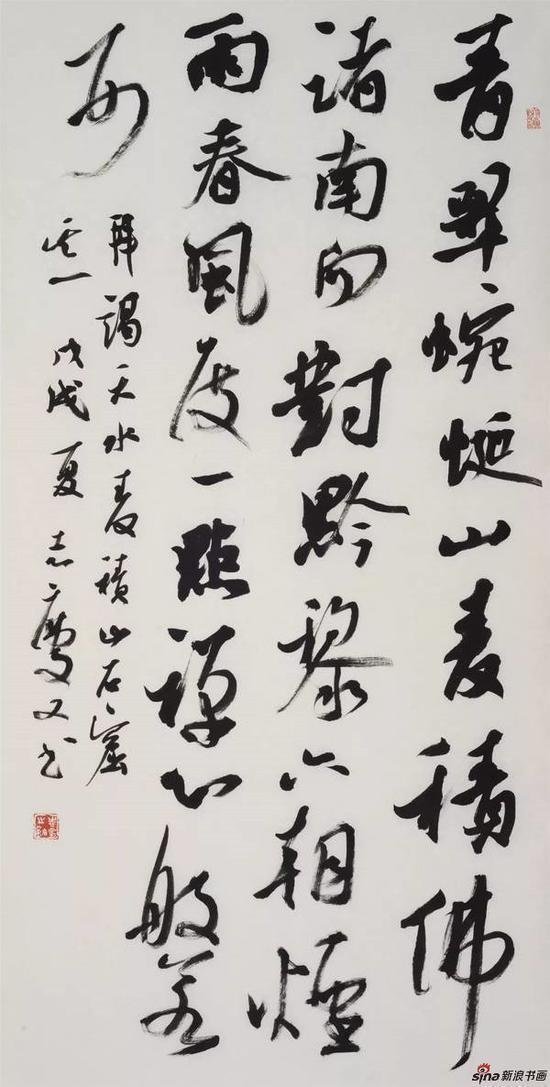 青翠蜿蜒山麦積佛
诸南向對黔黎六朝煙
雨春風度一點禪心般若
拜謁天水麦積山石窟
其一 戊戌夏 志慶又书
sina新浪书画